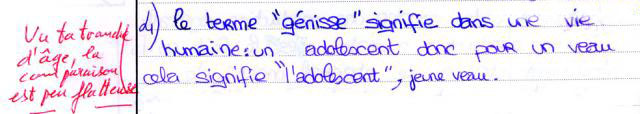 Vu ta tranche
d'âge, la
comparaison
est peu flatteuse
d) le terme "génisse" signifie dans une vie
humaine : un adolescent donc pour un veau
cela signifie "l'adolescent", jeune veau.